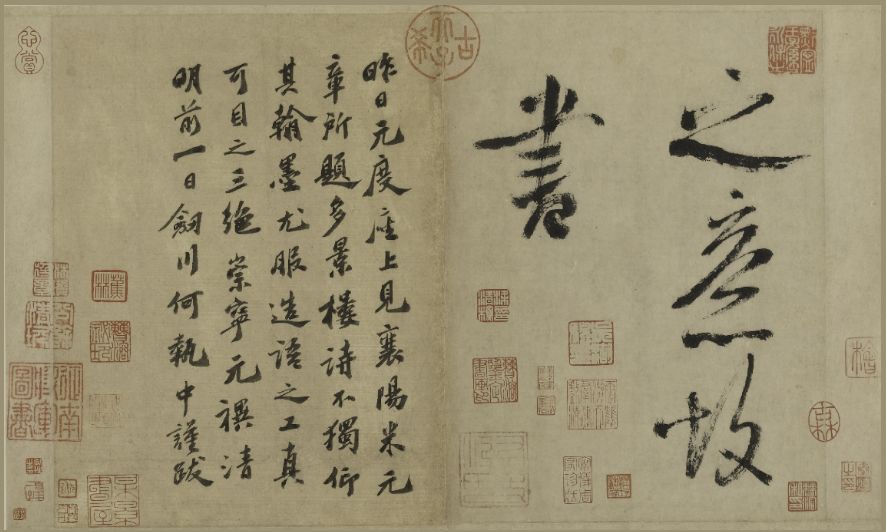 之意故
書
古希天子
昨日元度座上見襄陽米元
章所題多景樓詩不獨仰
其翰墨尤服造語之工真
可目之三絕崇寧元禩清
明前一日劒川何執中謹跋